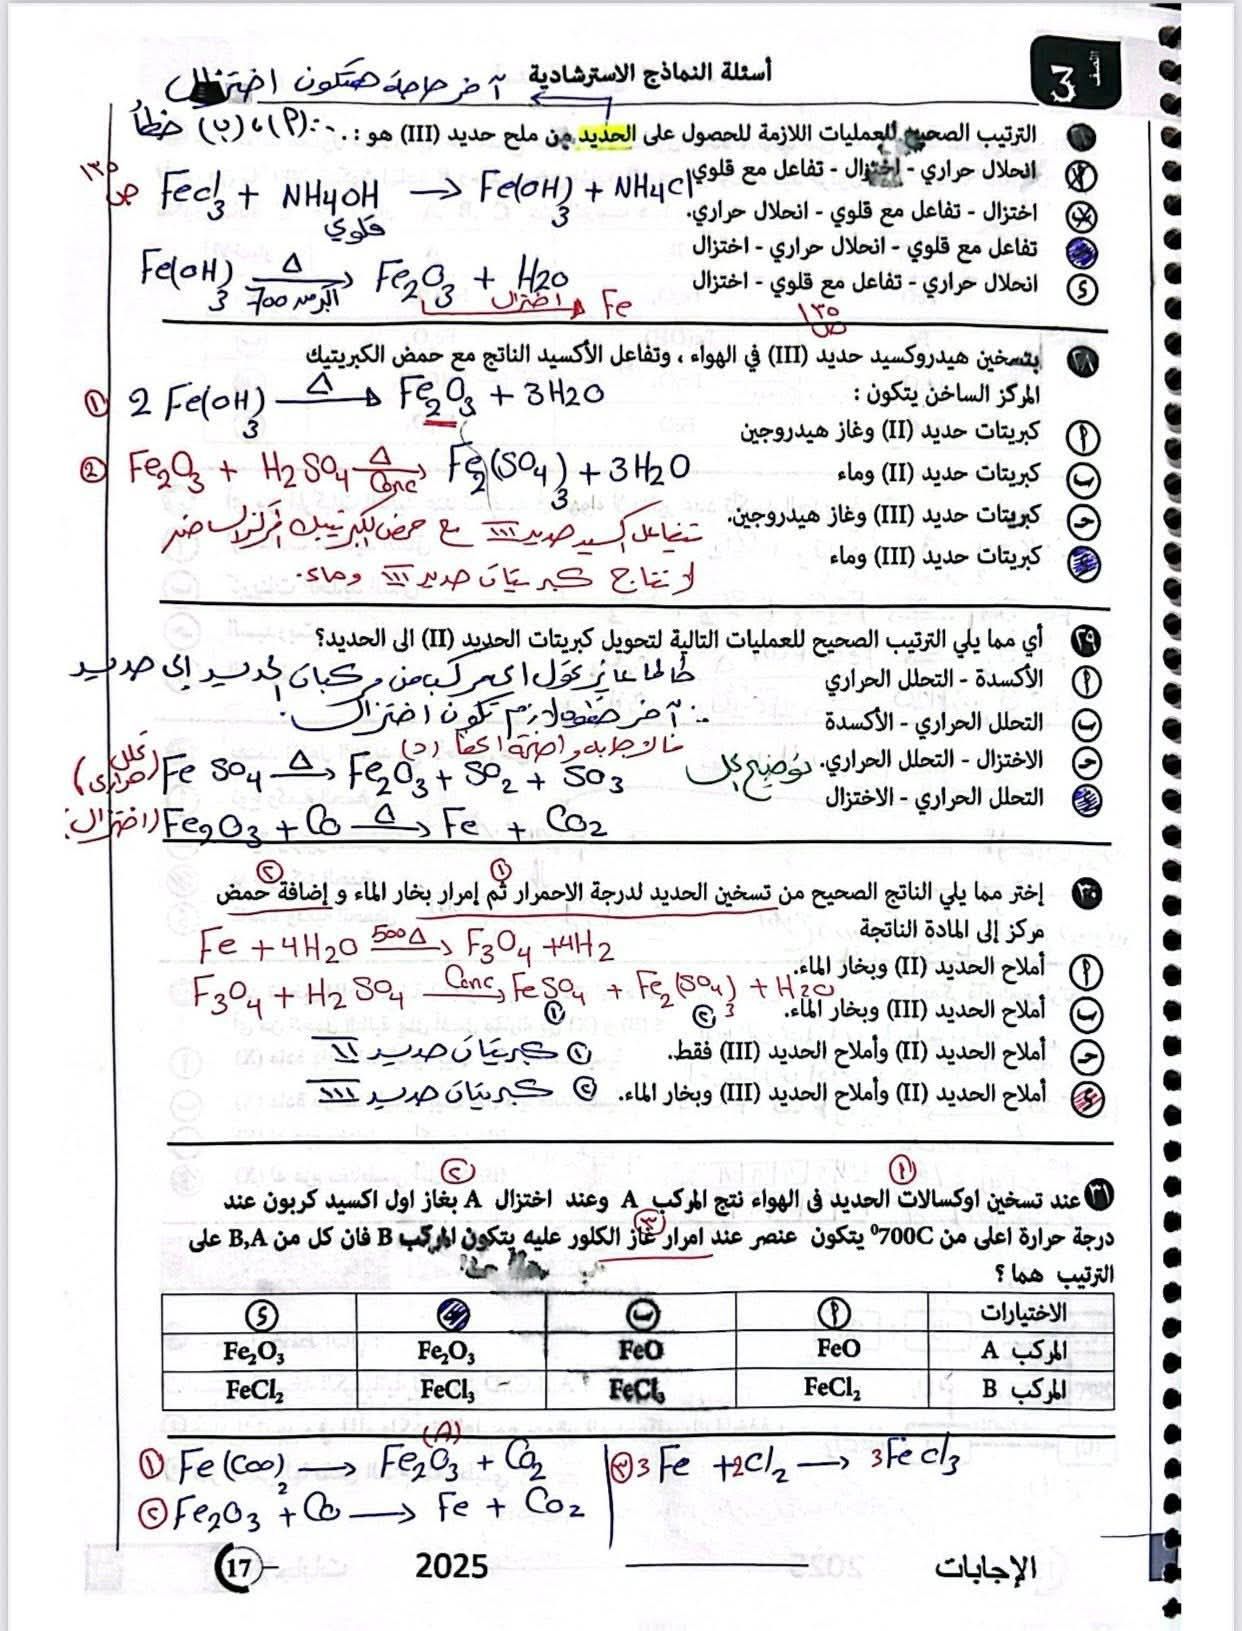 الصف
3
أسئلة النماذج الاسترشادية
آخر حاجة هتكون اختزال
٢٧ الترتيب الصحيح للعمليات اللازمة للحصول على الحديد من ملح حديد (III) هو :
∴ (أ) ، (ب) خطأ
أ انحلال حراري - اختزال - تفاعل مع قلوي
ب اختزال - تفاعل مع قلوي - انحلال حراري.
ج تفاعل مع قلوي - انحلال حراري - اختزال
د انحلال حراري - تفاعل مع قلوي - اختزال
ص ١٣٥
FeCl3 + NH4OH → Fe(OH)3 + NH4Cl
قلوي
Fe(OH)3 —Δ→ Fe2O3 + H2O
أكبر من 700
اختزال Fe
ص ١٣٥
٢٨ بتسخين هيدروكسيد حديد (III) في الهواء ، وتفاعل الأكسيد الناتج مع حمض الكبريتيك
المركز الساخن يتكون :
① 2 Fe(OH)3 —Δ→ Fe2O3 + 3H2O
أ كبريتات حديد (II) وغاز هيدروجين
ب كبريتات حديد (II) وماء
ج كبريتات حديد (III) وغاز هيدروجين.
د كبريتات حديد (III) وماء
② Fe2O3 + H2SO4 —Δ Conc→ Fe2(SO4)3 + 3H2O
تفاعل أكسيد حديد III مع حمض الكبريتيك المركز الساخن
لإنتاج كبريتات حديد III وماء.
٢٩ أي مما يلي الترتيب الصحيح للعمليات التالية لتحويل كبريتات الحديد (II) الى الحديد؟
أ الأكسدة - التحلل الحراري
ب التحلل الحراري - الأكسدة
ج الاختزال - التحلل الحراري.
د التحلل الحراري - الاختزال
طالما عايز يحول أي مركب من مركبات الحديد إلى حديد
∴ آخر خطوة لازم تكون اختزال.
فالإجابة واضحة أهها (د)
توضيح الحل
FeSO4 —Δ→ Fe2O3 + SO2 + SO3
(تحلل حراري)
Fe2O3 + Co —Δ→ Fe + CO2
(اختزال)
٣٠ إختر مما يلي الناتج الصحيح من تسخين الحديد لدرجة الاحمرار ثم إمرار بخار الماء و إضافة حمض
① ②
مركز إلى المادة الناتجة
Fe + 4H2O —500 Δ→ F3O4 + 4H2
أ أملاح الحديد (II) وبخار الماء.
ب أملاح الحديد (III) وبخار الماء.
ج أملاح الحديد (II) وأملاح الحديد (III) فقط.
د أملاح الحديد (II) وأملاح الحديد (III) وبخار الماء.
F3O4 + H2SO4 —Conc→ FeSO4 + Fe2(SO4)3 + H2O
① ②
① كبريتات حديد II
② كبريتات حديد III
① ②
٣١ عند تسخين اوكسالات الحديد في الهواء نتج المركب A وعند اختزال A بغاز اول اكسيد كربون عند
درجة حرارة اعلى من 700C⁰ يتكون عنصر عند امرار غاز الكلور عليه يتكون المركب B فان كل من B,A على
③
الترتيب هما ؟
الاختيارات أ ب ج د
المركب A FeO FeO Fe2O3 Fe2O3
المركب B FeCl2 FeCl3 FeCl3 FeCl2
(A)
① Fe(Coo)2 → Fe2O3 + Co2
② Fe2O3 + Co → Fe + Co2
③ 3Fe + 2Cl2 → 3FeCl3
الإجابات
2025
17